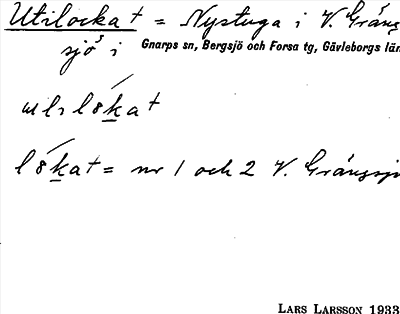 Utilocka + = Nystuga i V. Gräng
sjö i Gnarps sn, Bergsjö och Forsa tg, Gävleborgs län
+
= nr 1 och 2 V. Grängsjö
LARS LARSSON 1933